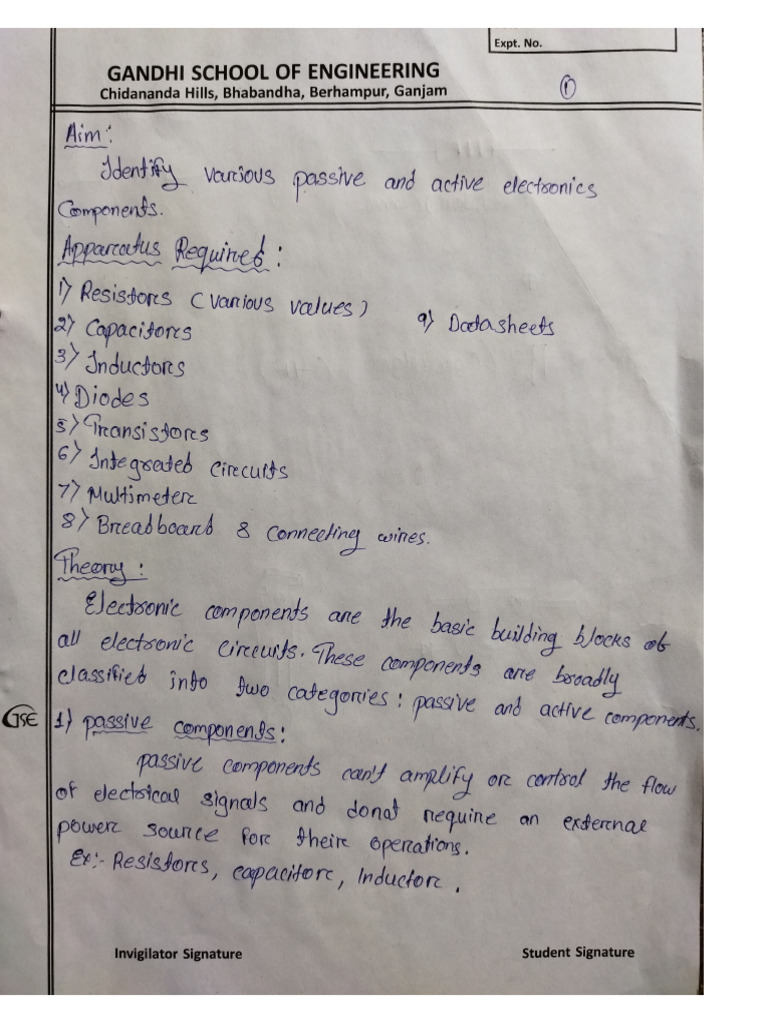 Expt. No.
GANDHI SCHOOL OF ENGINEERING
Chidananda Hills, Bhabandha, Berhampur, Ganjam
1
Aim:
Identify various passive and active electronics
Components.
Apparatus Required:
1) Resistors (various values)
2) Capacitors
9) Datasheets
3) Inductors
4) Diodes
5) Transistors
6) Integrated circuits
7) Multimeter
8) Breadboard & connecting wires.
Theory:
Electronic components are the basic building blocks of
all electronic circuits. These components are broadly
classified into two categories: passive and active components.
GSE
1) passive components:
passive components can't amplify or control the flow
of electrical signals and donot require an external
power source for their operations.
Ex:- Resistors, capacitor, Inductor.
Invigilator Signature
Student Signature